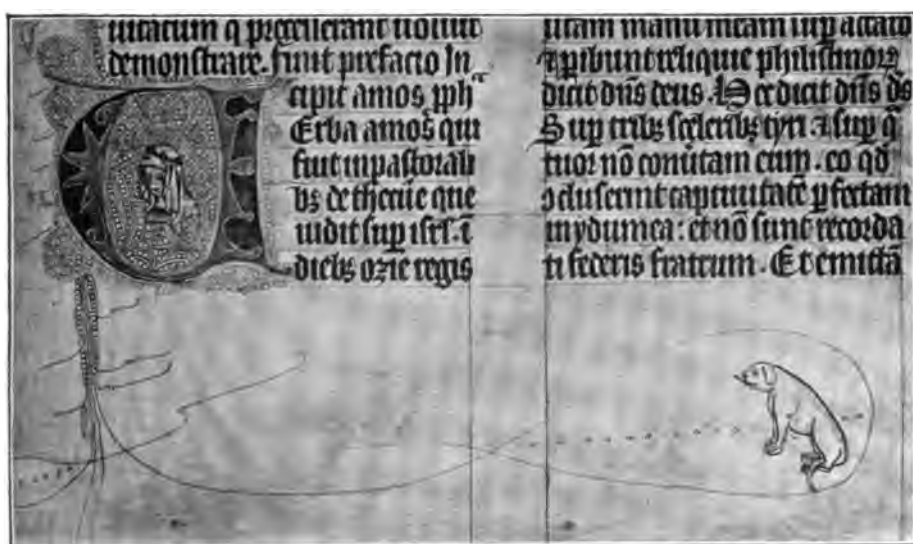 uitatum q pregenerant uoluit
demonstrare. finit prefacio In
cipit amos pph
Erba amos qui
fuit in pastorali
bs de thecue que
uidit sup isrl. i
diebs ozie regis
uitam manu meam sup accaro
⁊ pibunt relique philistinorꝝ
dicit dns deus. Hec dicit dns ds
Sup tribs sceleribs tyri ⁊ sup q
tuor nō conutam eum. eo qd
cluserint captiuitatē pfectam
in ydumea: et nō sunt recorda
ti federis fratrum. Et emittā